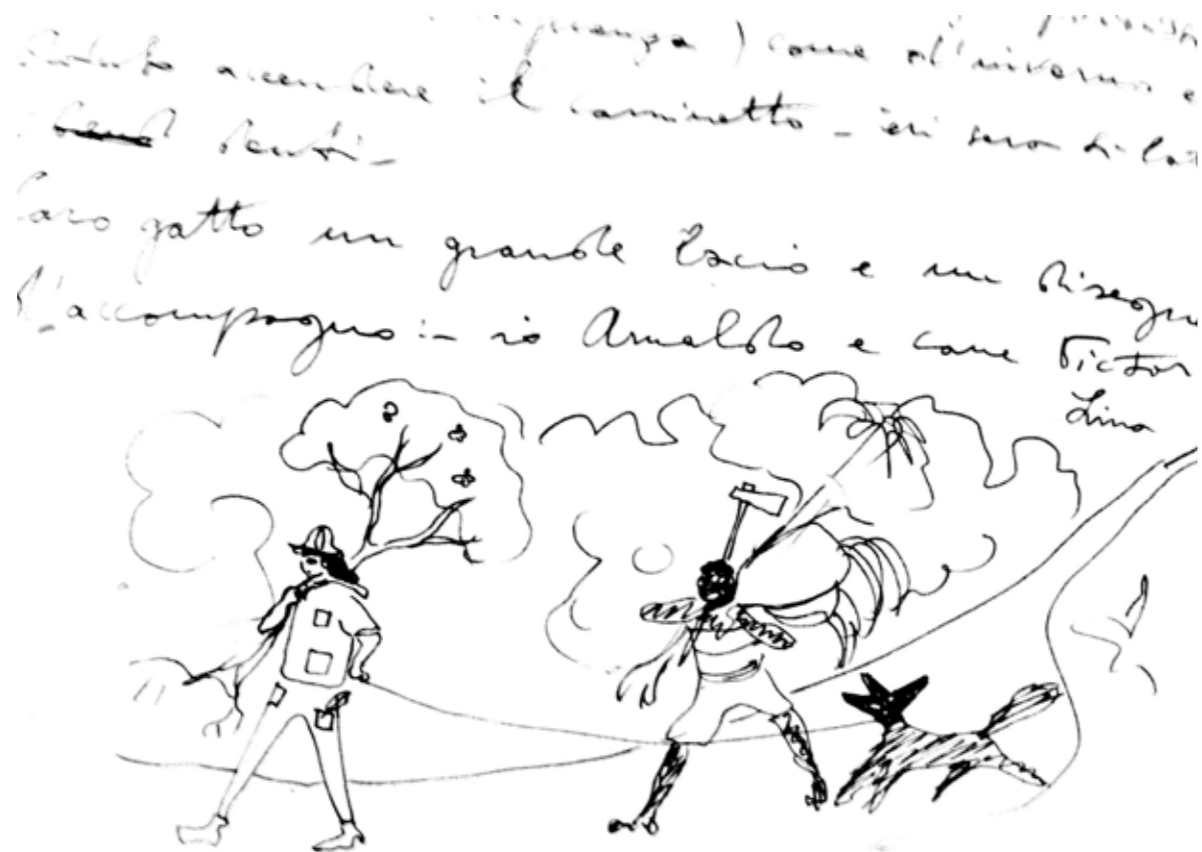 come d'inverno e
accendere il caminetto - ieri sera
denti -
Caro gatto un grande bacio e un disegno
l'accompagno :- io Arnaldo e cane Victor
Lina